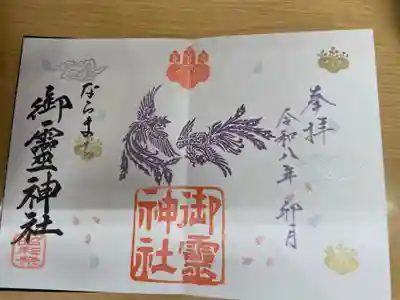 奉拝
令和八年 卯月
御靈
神社
ならまち
御靈神社